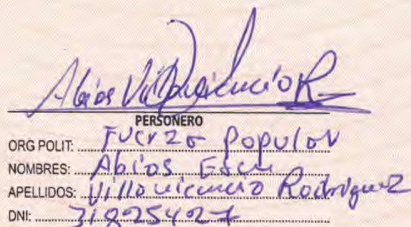 Abios Villavicencio R
PERSONERO
ORG POLIT: Fuerza Popular
NOMBRES: Abios
APELLIDOS: Villavicencio Rodriguez
DNI: 31825427